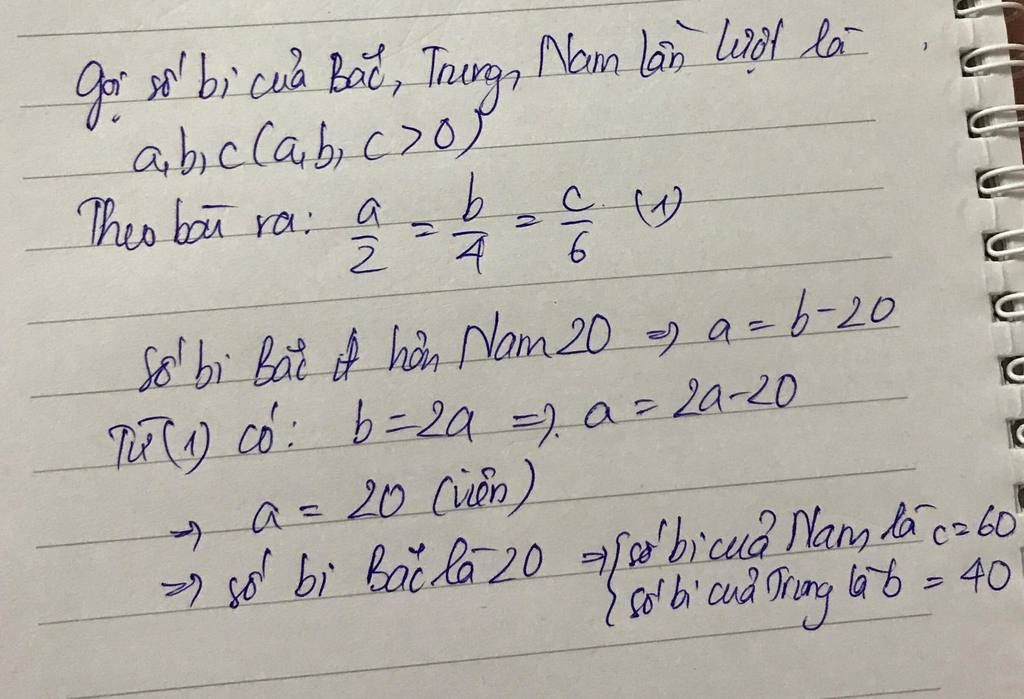 Gọi số bi của Bắc, Trung, Nam lần lượt là
a, b, c (a, b, c > 0)
Theo bài ra: a/2 = b/4 = c/6 (1)
Số bi Bắc ít hơn Nam 20 => a = b - 20
Từ (1) có: b = 2a => a = 2a - 20
=> a = 20 (viên)
=> số bi Bắc là 20 => { số bi của Nam là c = 60
{ số bi của Trung là b = 40